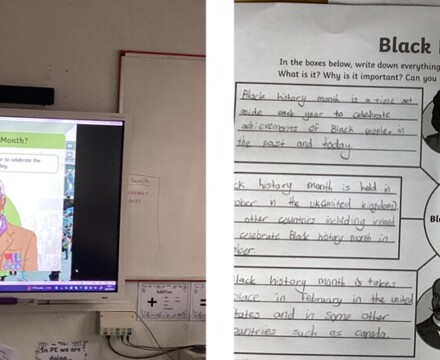 Month?
to celebrate the
Lunch
Addition
+
=
In PE we are
doing...
Black
In the boxes below, write down everything
What is it? Why is it important? Can you
Black history month is a time set
aside each year to celebrate
achievements of Black people in
the past and today
ck history month is held in
ober in the ukunited kingdom
other countries including ireland
celebrate Black history month in
ober.
Black history month is takes
place in february in the united
tates and in some other
countries such as canada.
Bl